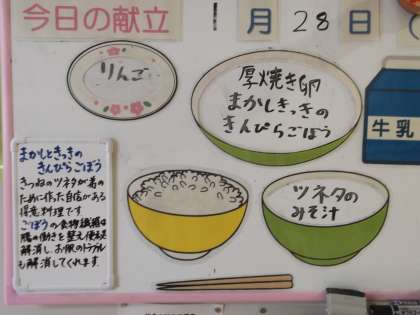 今日の献立
1月28日(
りんご
厚焼き卵
まかしきっきの
きんぴらごぼう
牛乳
まかしときっきの
きんぴらごぼう
きつねのツネタが君の
ために作った自信がある
得意料理です
ごぼうの食物繊維は
腸の働きを整え便秘を
解消し、お腹のトラブル
も解消してくれます。
ツネタの
みそ汁